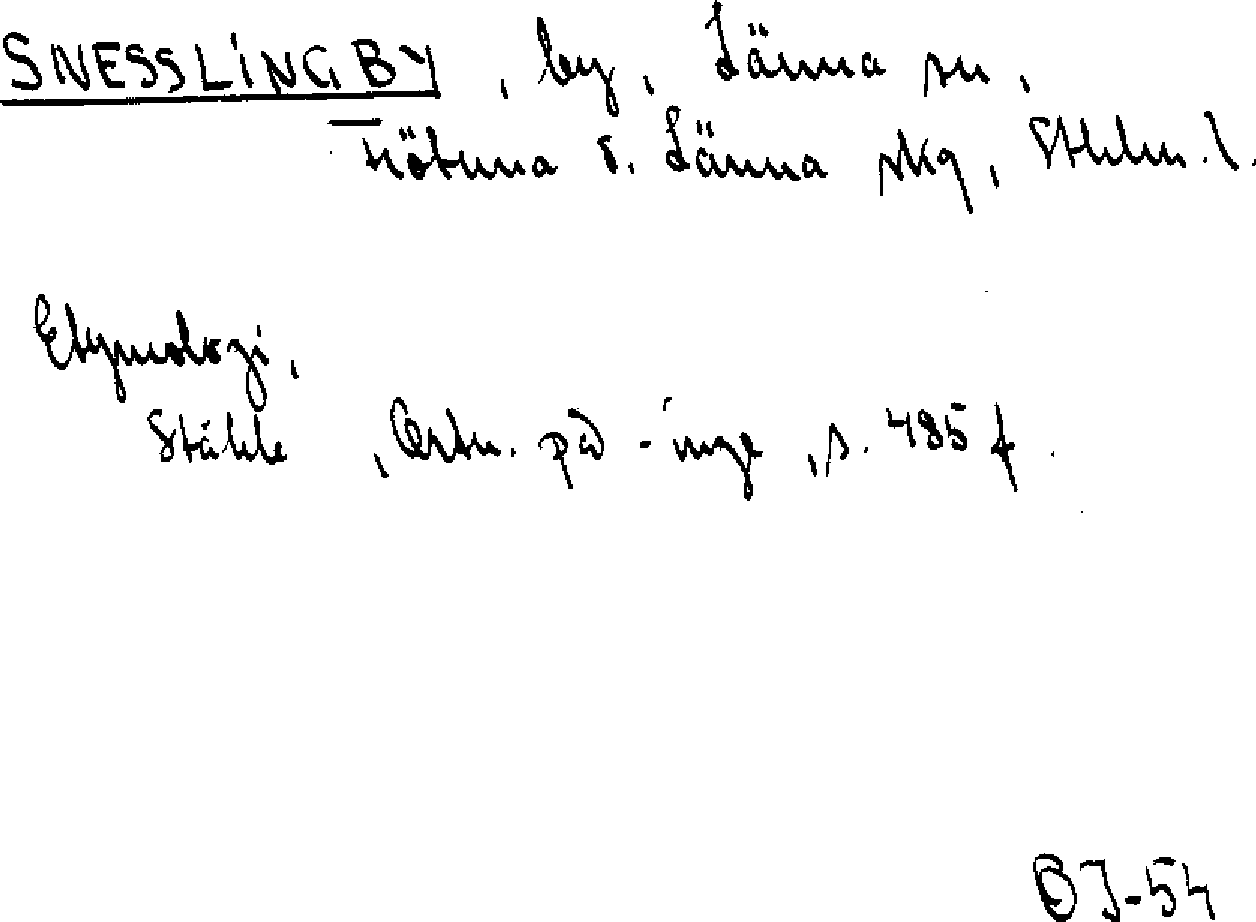 SNESSLINGBY, by, Länna sn,
Frötuna o. Länna skg, Sthlm. l.
Etymologi,
Ståhle, Ortn. på -inge, s. 485 f.
BJ-54